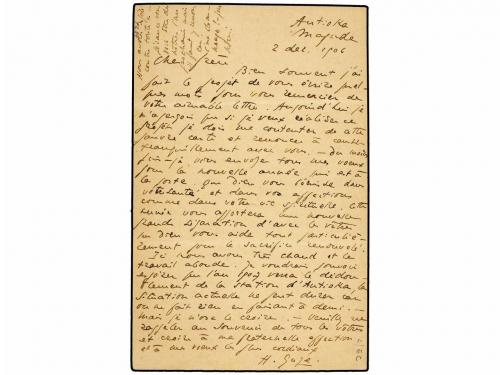 Antioka
Magude
2 dec. 1906
Cher frère
Bien souvent j'ai
fait le projet de vous écrire quel-
ques mots pour vous remercier de
votre aimable lettre. Aujourd'hui je
m'aperçois que si je veux réaliser ce
projet je dois me contenter de cette
pauvre carte et renoncer à causer
tranquillement avec vous. - Du moins
je vous envoie tous mes voeux
pour la nouvelle année qui est à
la porte, que Dieu vous bénisse dans
votre et dans vos affections
comme dans votre vie spirituelle. Cette
année vous apportera une nouvelle
grande séparation d'avec les vôtres
que Dieu vous aide tout particuliè-
rement pour le sacrifice renouvelé.
Ici nous avons très chaud et le
travail abonde. Je voudrais pouvoir
espérer que l'an 1907 verra le dédou-
blement de la station d'Antioka, la
situation actuelle ne peut durer car
on ne fait rien en faisant à demi. -
mais je n'ose le croire. - Veuillez me
rappeler au souvenir de tous les vôtres
et croire à ma fraternelle affection
et à mes voeux les plus cordiaux